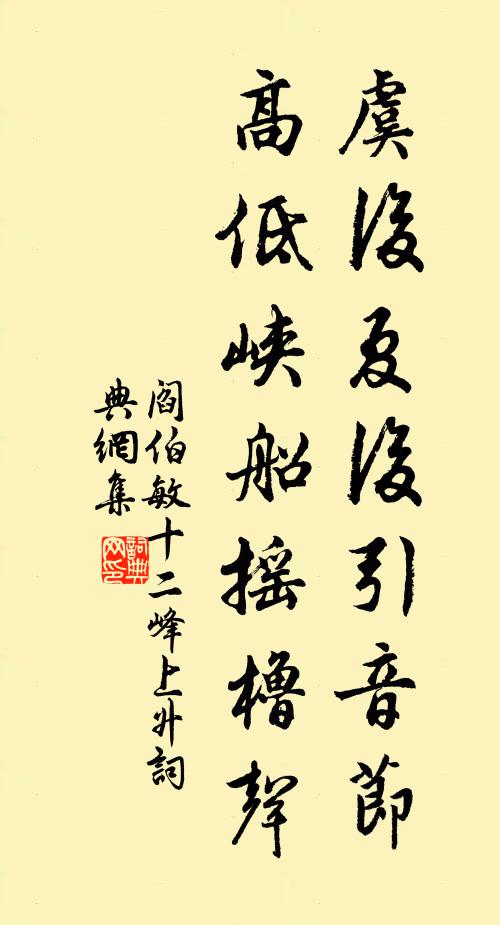 虞後夏後引音節
高低峽船搖櫓聲
閻伯敏十二峰上升詞
典網集
詞典
网印